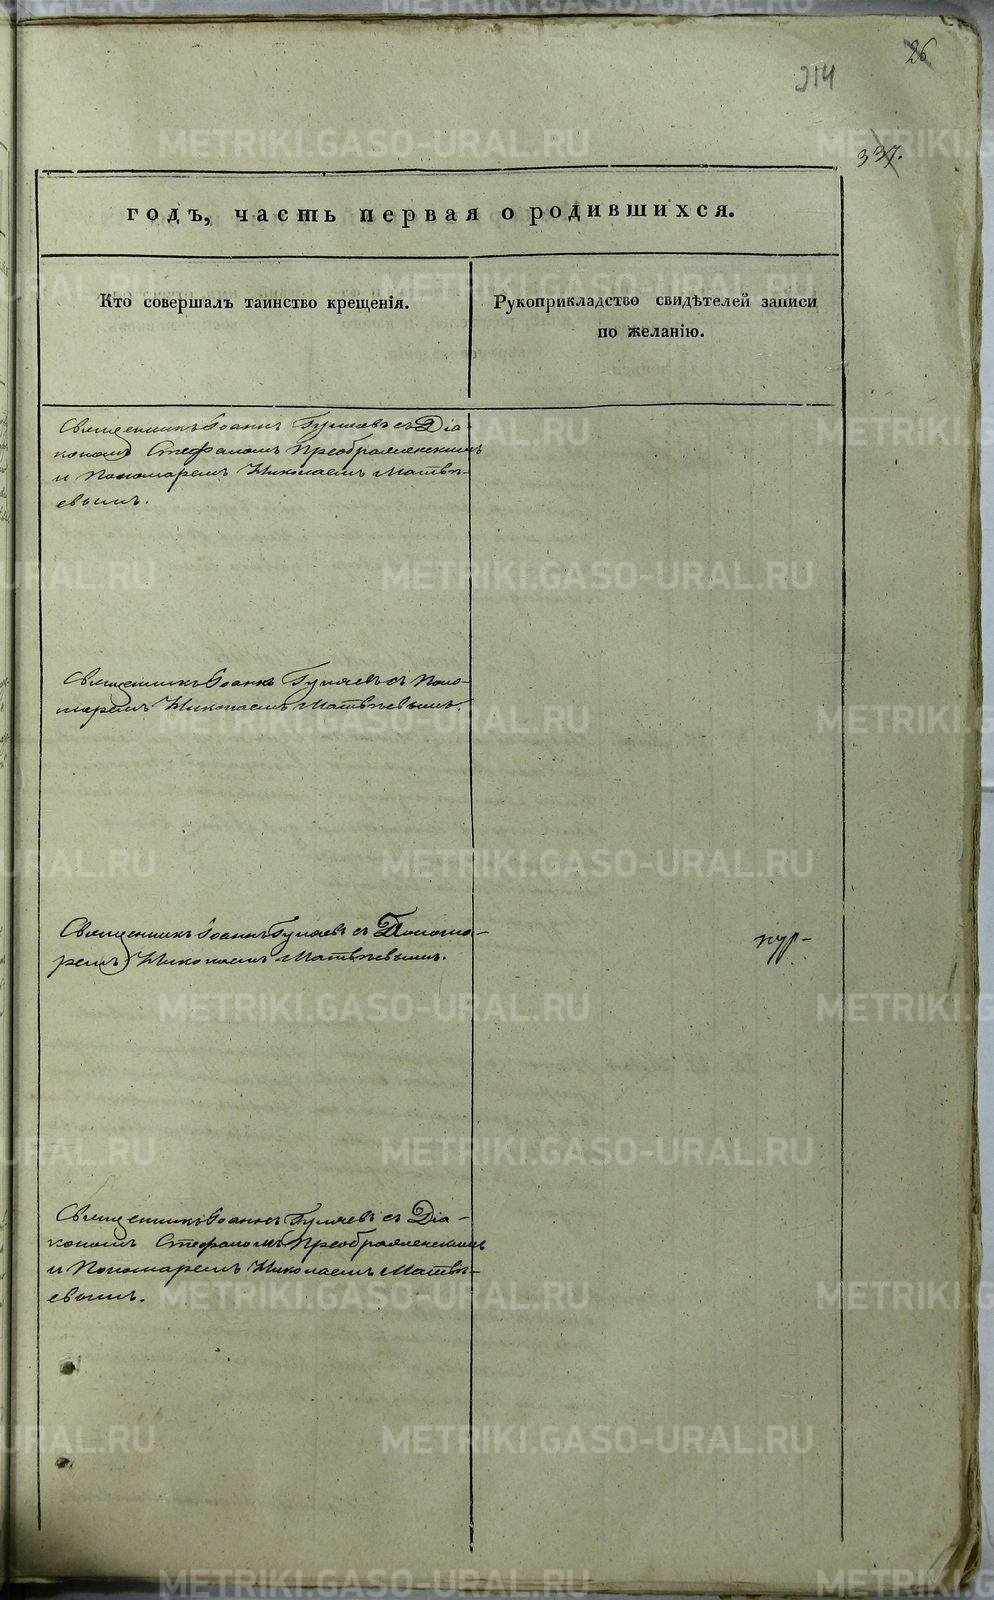 26.
214
337.
годъ, часть первая о родившихся.
Кто совершалъ таинство крещенія.
Рукоприкладство свидѣтелей записи
по желанію.
Священникъ Іоаннъ Гуляевъ съ Діа-
кономъ Стефаномъ Преображенскимъ
и Пономаремъ Николаемъ Матвѣ-
евымъ.
Священникъ Іоаннъ Гуляевъ съ Поно-
маремъ Николаемъ Матвѣевымъ.
Священникъ Іоаннъ Гуляевъ съ Понома-
ремъ Николаемъ Матвѣевымъ.
Священникъ Іоаннъ Гуляевъ съ Діа-
кономъ Стефаномъ Преображенскимъ
и Пономаремъ Николаемъ Матвѣ-
евымъ.
METRIKI.GASO-URAL.RU